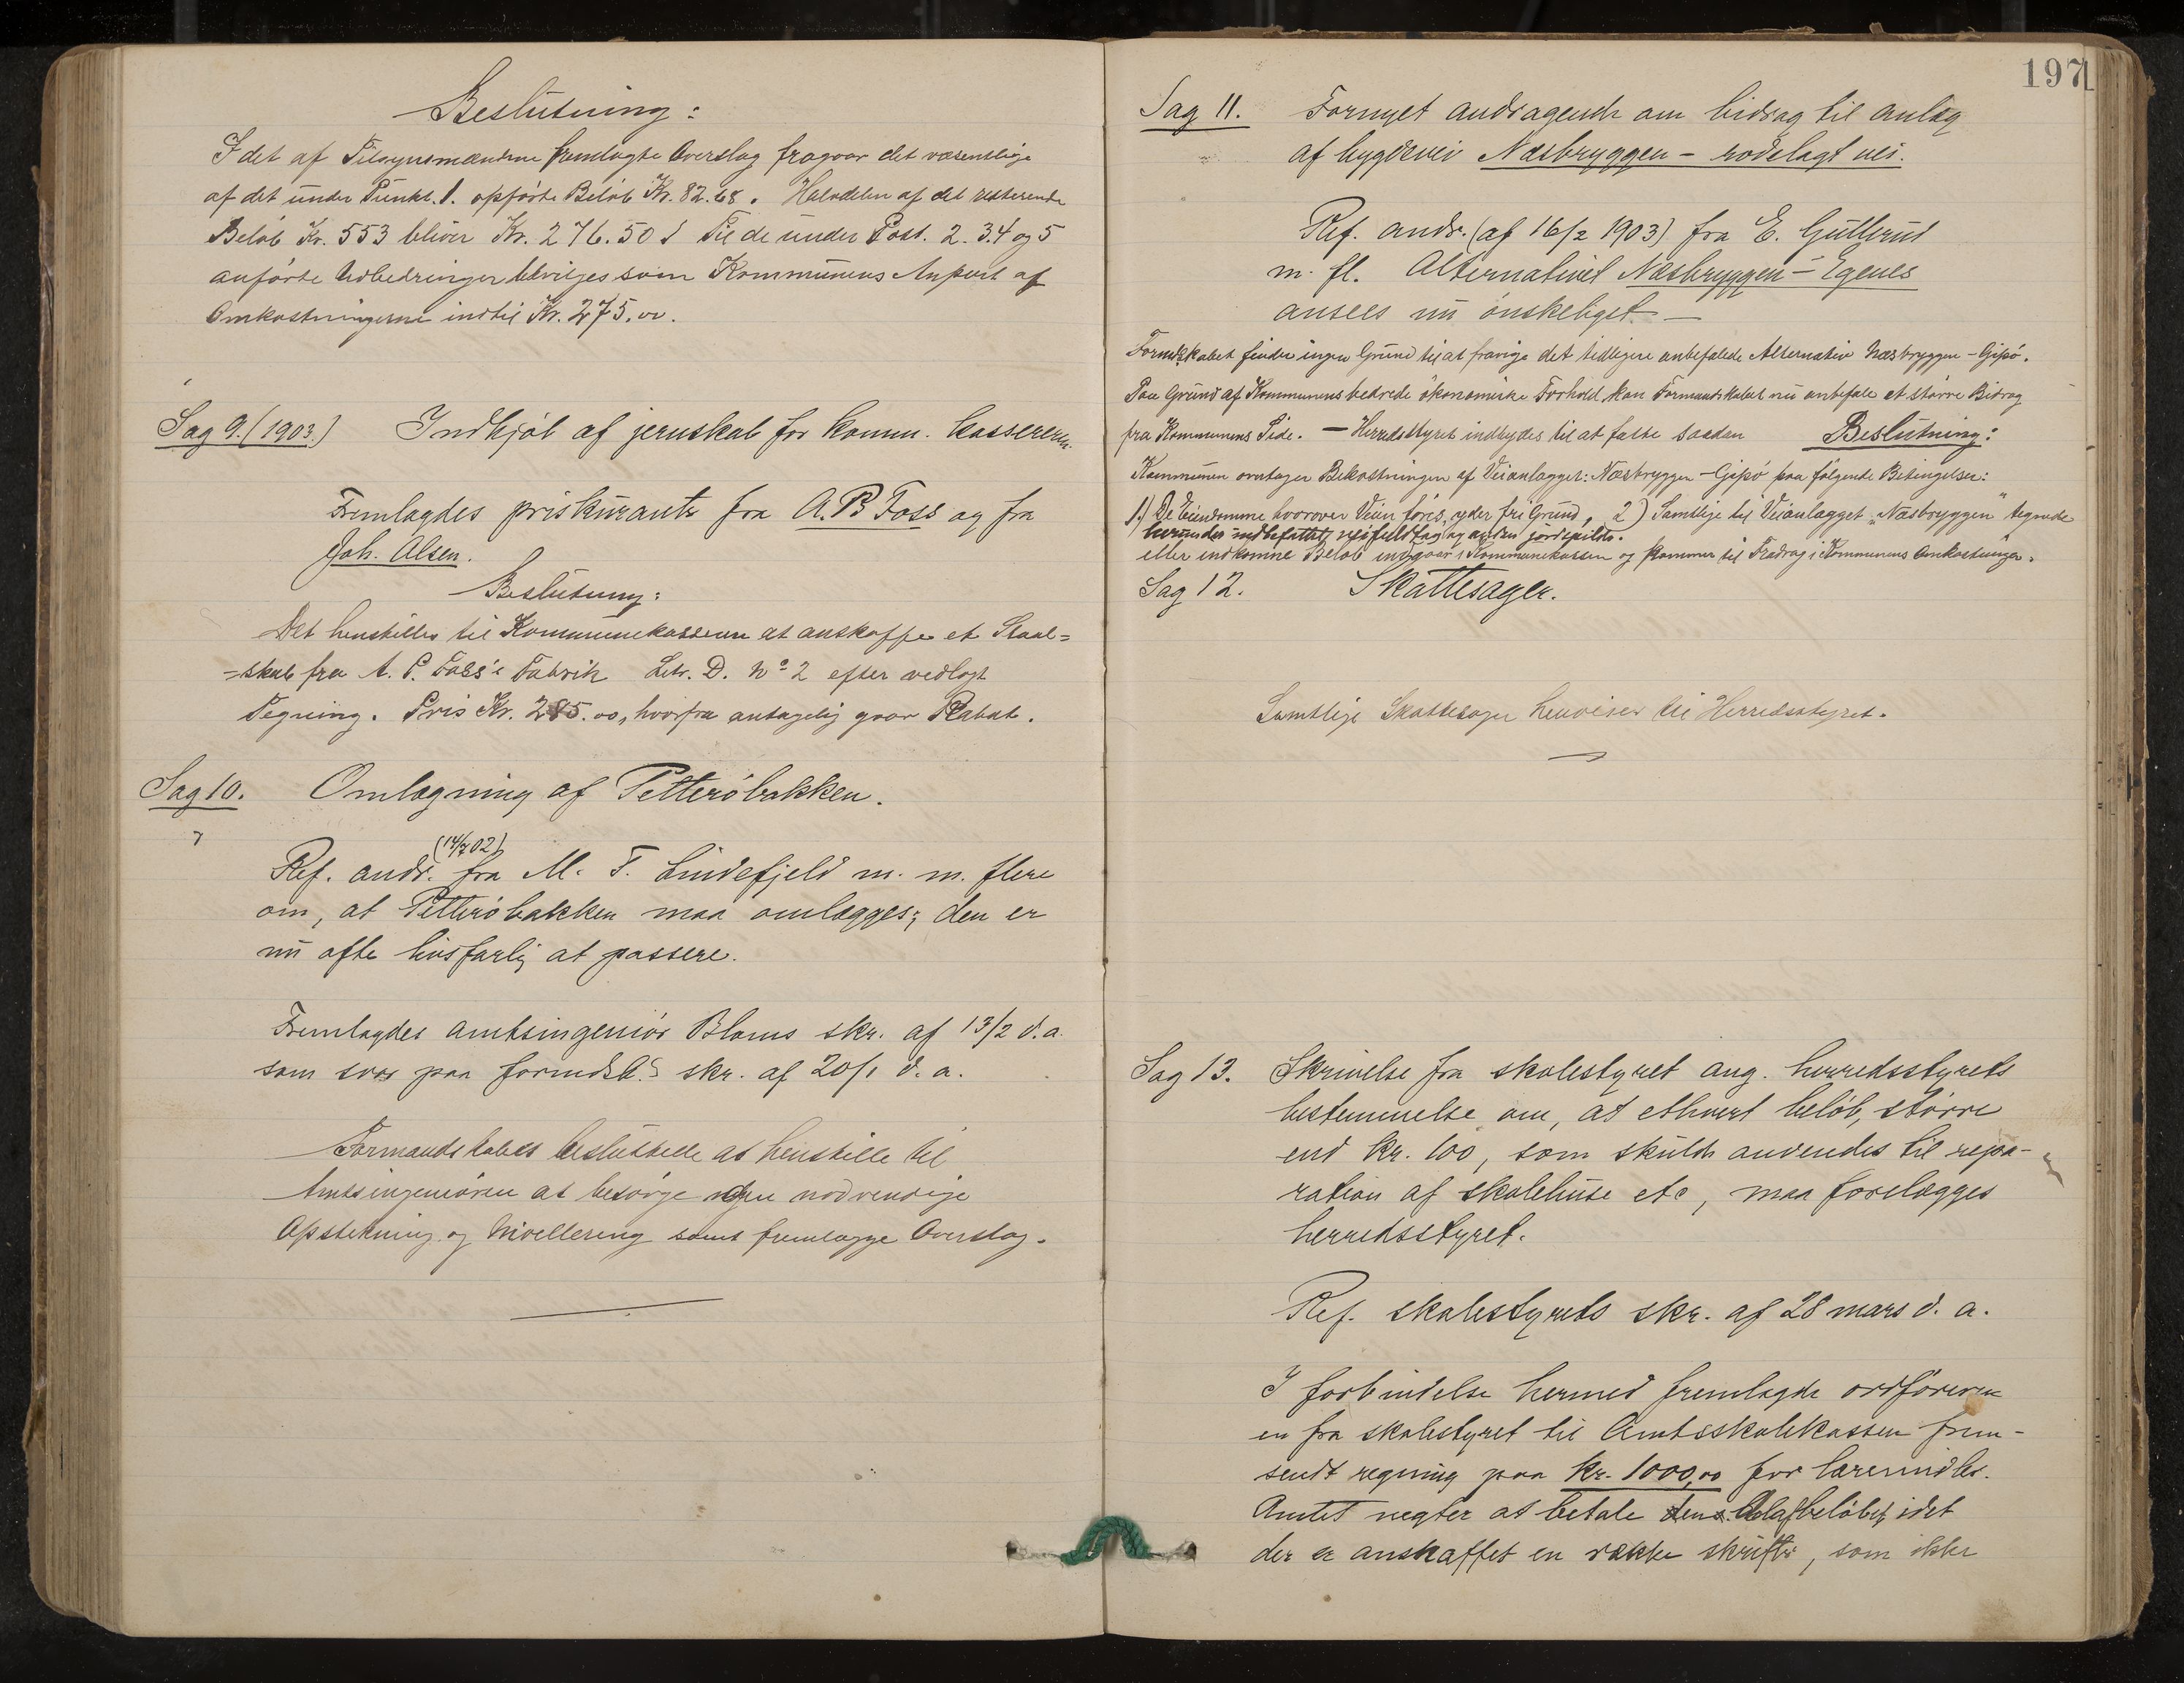 Beslutning:
I det af Tilsynsmændene fremlagte Overslag fragaar det væsentlige
af det under Punkt. 1. opførte Beløb Kr. 82.68. Halvdelen af det resterende
Beløb Kr. 553 bliver Kr. 276.50 Til de under Post. 2. 3.4 og 5
anførte Udbedringer bevilges som Kommunens Anpart af
Omkostningerne indtil Kr. 275.00.
Sag 9. (1903.) Indkjøb af jernskab for komm. kassereren.
Fremlagdes priskuranter fra A. B Foss og fra
Joh. Olsen.
Beslutning:
Det henstilles til Kommunekassereren at anskaffe et Staal=
=skab fra A. P. Foss's Fabrik Litr. D. No 2 efter vedlagt
Tegning. Pris Kr. 285.00, hvorfra antagelig gaar Rabat.
Sag 10. Omlægning af Petterøbakken.
(14/7 02)
Ref. andr. fra M. F. Lindefjeld m. m. flere
om, at Petterøbakken maa omlægges; den er
nu ofte livsfarlig at passere.
Fremlagdes amtsingeniør Bloms skr. af 13/2 d. a.
som svar paa formdsk.s skr. af 20/1 d. a.
Formandskabet besluttede at henstille til
Amtsingeniøren at besørge den nødvendige
Opstikning og Nivellering samt fremlægge Overslag.
197
Sag 11. Fornyet andragende om bidrag til anlæg
af bygdevei Næsbryggen – rodelagt vei.
Ref. andr. (af 16/2 1903) fra E. Gullerud
m. fl. Alternativet Næsbryggen – Egenes
ansees nu ønskeligst. –
Formdskabet finder ingen Grund til at fravige det tidligere anbefalede Alternativ Næsbryggen – Gipø.
Paa Grund af Kommunens bedrede økonomiske Forhold kan Formandskabet nu anbefale et større Bidrag
fra Kommunens Side. – Herredsstyret indbydes til at fatte saadan Beslutning:
Kommunen overtager Bekostningen af Veianlægget: Næsbryggen – Gipø paa følgende Betingelser:
1.) De Eiendomme hvorover Veien føres, yder fri Grund, 2) Samtlige til Veianlægget "Næsbryggen" tegnede
herunder indbefattet veifyldtag og anden jordspilde.
eller indkomne Beløb indgaar i Kommunekassen og kommer til Fradrag i Kommunens Omkostninger.
Sag 12. Skattesager.
Samtlige Skattesager henvises til Herredsstyret.
Sag 13. Skrivelse fra skolestyret ang. herredsstyrets
bestemmelse om, at ethvert beløb, større
end kr. 100, som skulde anvendes til repa-
ration af skolehuse etc, maa forelægges
herredsstyret.
Ref. skolestyrets skr. af 28 mars d. a.
I forbindelse hermed fremlagde ordføreren
en fra skolestyret til Amtsskolekassen frem-
sendt regning paa kr. 1000,00 for læremidler.
Amtet negter at betale beløbet, idet
der er anskaffet en række skrifter, som ikke